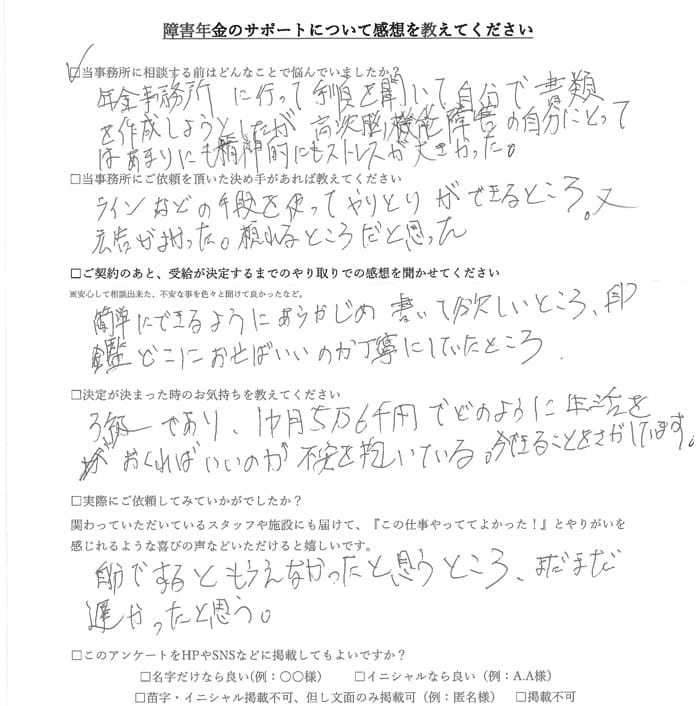 障害年金のサポートについて感想を教えてください
□当事務所に相談する前はどんなことで悩んでいましたか?
年金事務所に行って手順を聞いて自分で書類
を作成しようとしたが高次脳機能障害の自分にとって
はあまりにも精神的にもストレスが大きかった。
□当事務所にご依頼を頂いた決め手があれば教えてください
ラインなどの手段を使ってやりとりができるところ。又
広告が多かった。頼れるところだと思った
□ご契約のあと、受給が決定するまでのやり取りでの感想を聞かせてください
※安心して相談出来た、不安な事を色々と聞けて良かったなど。
簡単にできるようにあらかじめ書いて欲しいところ、印
鑑どこにおせばいいのか丁寧にしていたところ.
□決定が決まった時のお気持ちを教えてください
3級であり、1ヶ月5万6千円でどのように生活を
おくればいいのか不安を抱いている。今できることをさがしています。
□実際にご依頼してみていかがでしたか?
関わっていただいているスタッフや施設にも届けて、『この仕事やっててよかった!』とやりがいを
感じれるような喜びの声などいただけると嬉しいです。
自分でするともらえなかったと思うところ、まだまだ
遅かったと思う。
□このアンケートをHPやSNSなどに掲載してもよいですか?
□名字だけなら良い(例:〇〇様) □イニシャルなら良い(例:A.A様)
□苗字・イニシャル掲載不可、但し文面のみ掲載可(例:匿名様) □掲載不可